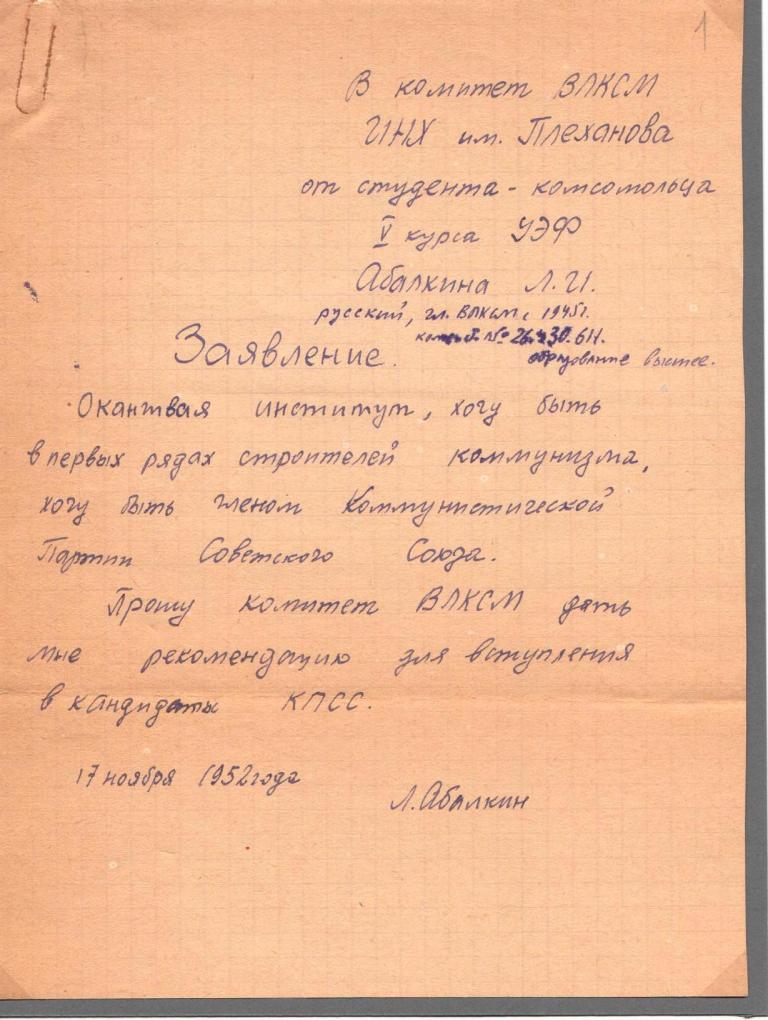 1
В комитет ВЛКСМ
ИНХ им. Плеханова
от студента - комсомольца
V курса УЭФ
Абалкина Л.И.
русский, чл. ВЛКСМ с 1945г.
№ 26430611.
Заявление.
образование высшее.
Оканчивая институт, хочу быть
в первых рядах строителей коммунизма,
хочу быть членом Коммунистической
Партии Советского Союза.
Прошу комитет ВЛКСМ дать
мне рекомендацию для вступления
в кандидаты КПСС.
17 ноября 1952 года
Л. Абалкин